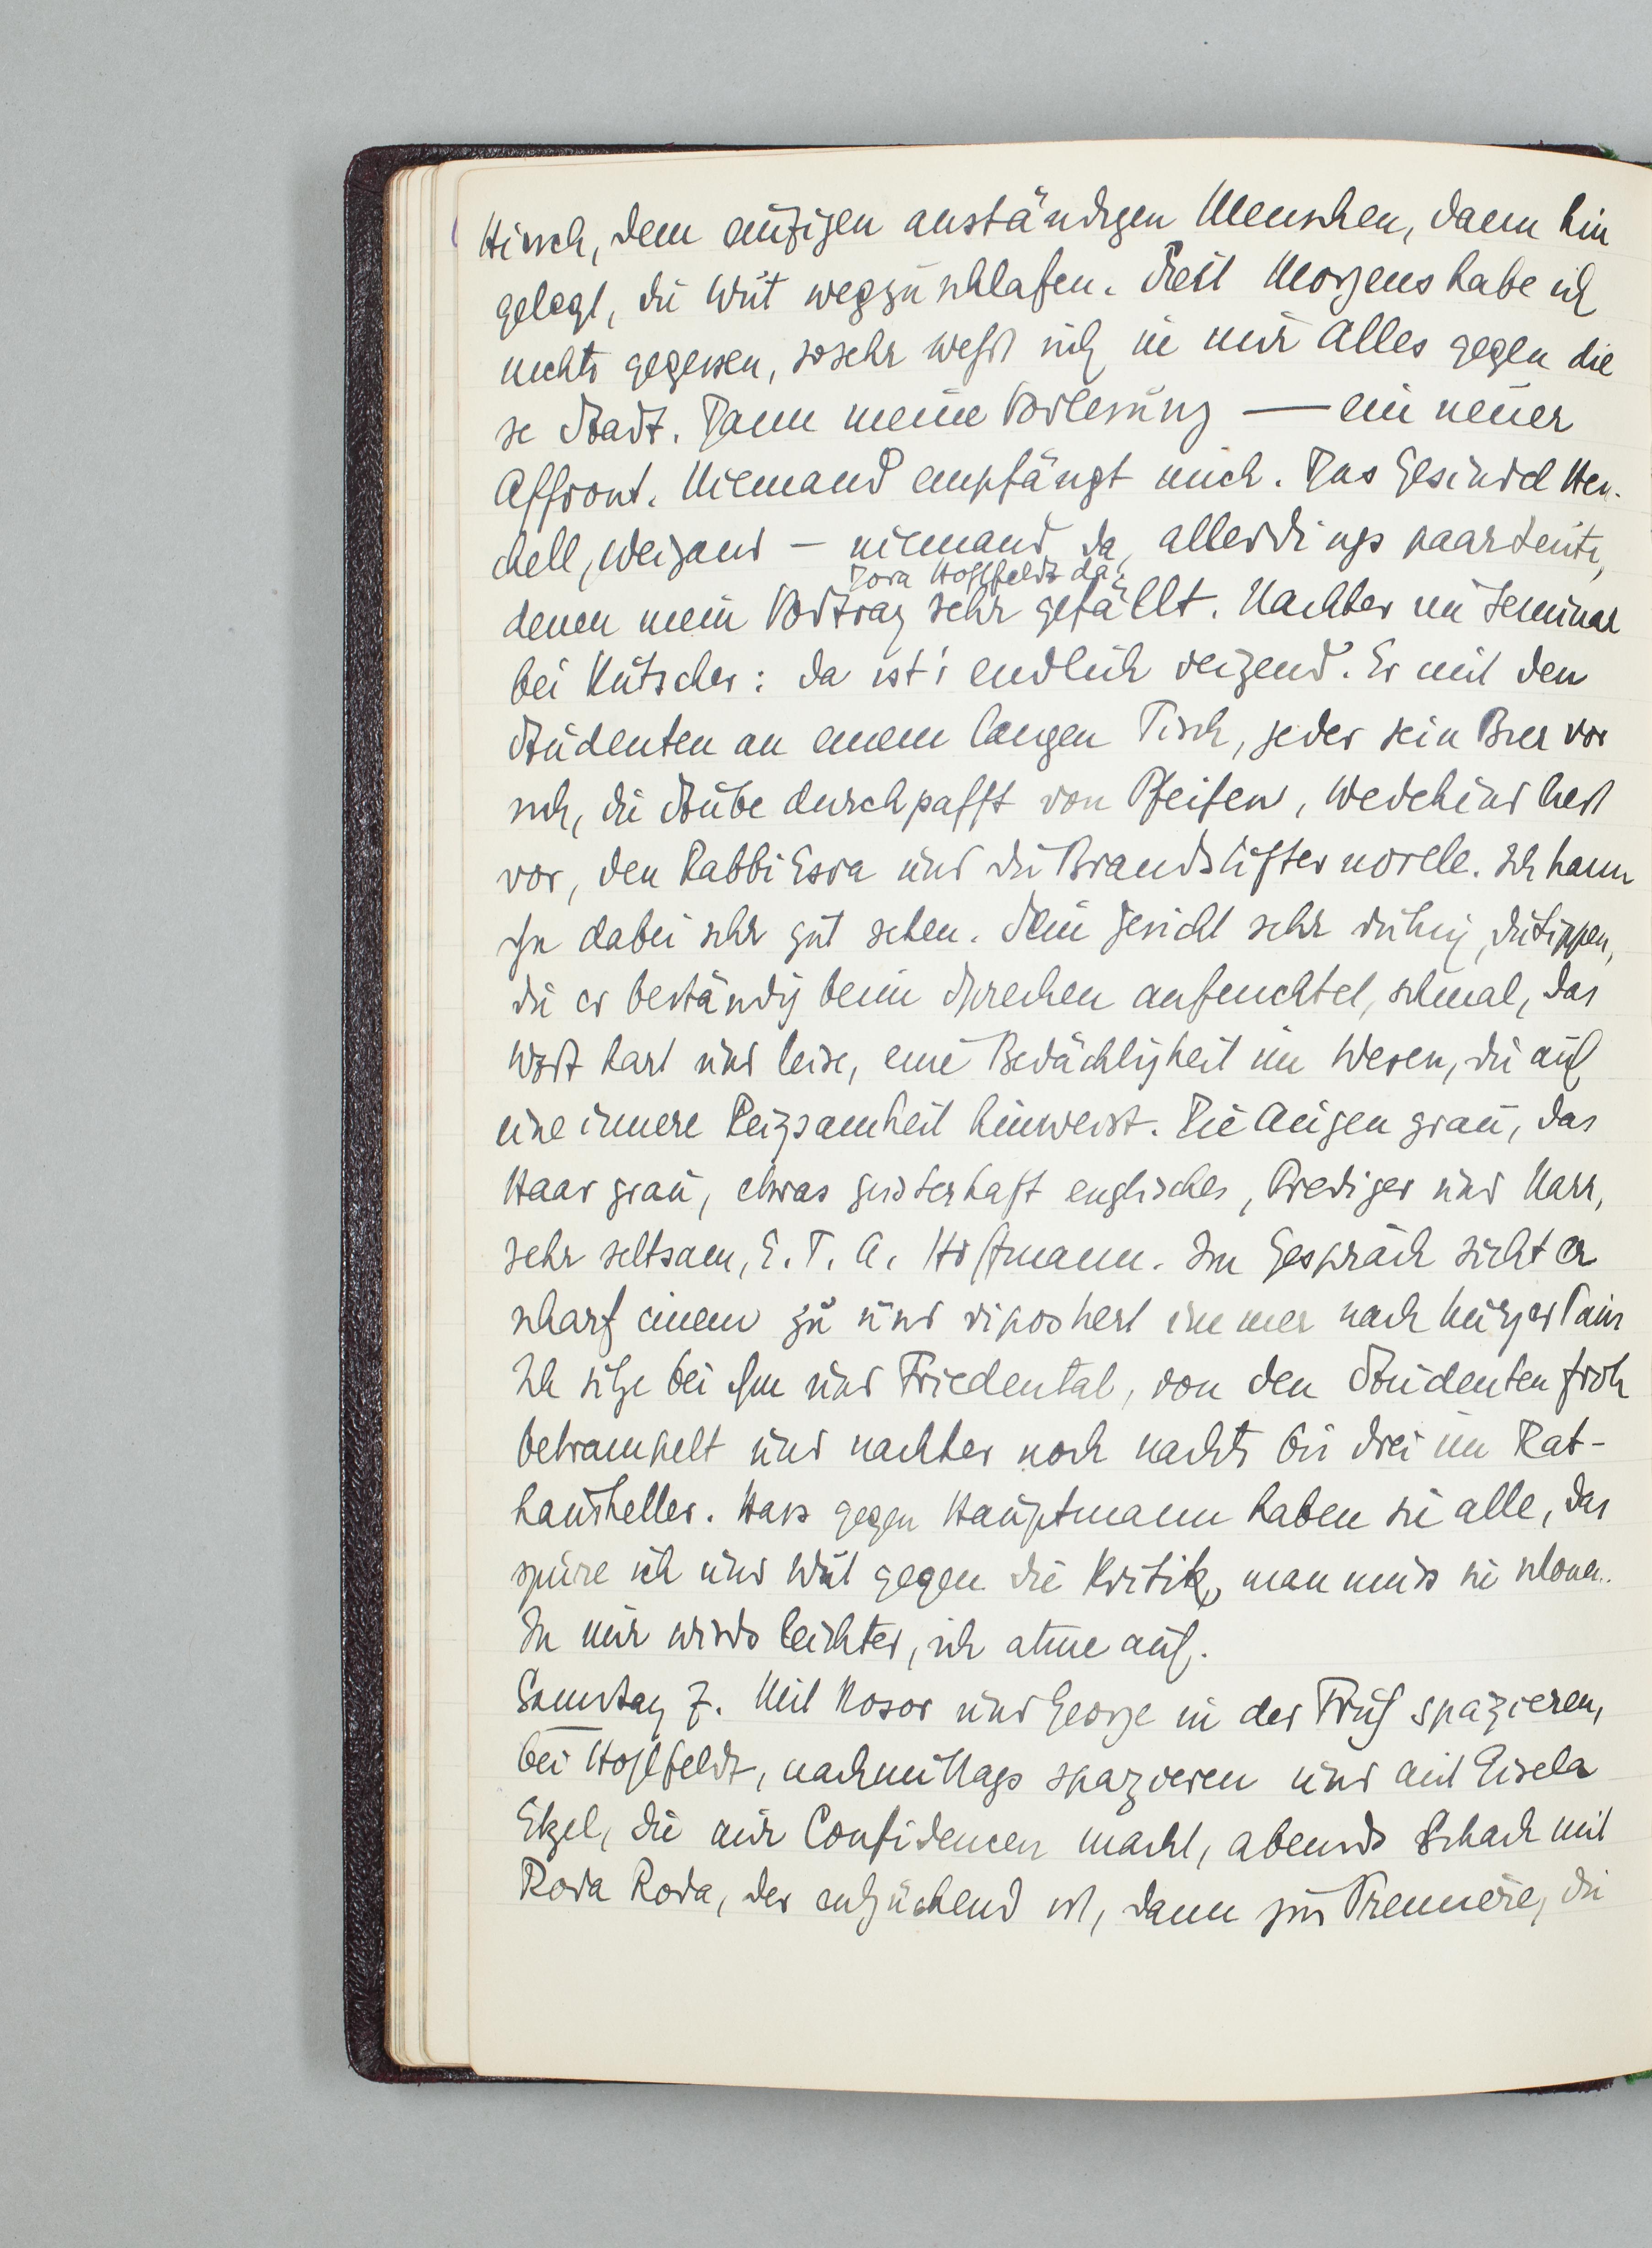 Hirsch, dem einzigen anständigen Menschen, dann hin
gelegt, die Wut wegzuschlafen. Seit Morgens habe ich
nichts gegessen, sosehr wehrt sich in mir Alles gegen die
se Stadt. Dann meine Vorlesung — ein neuer
Affront. Niemand empfängt mich. Das Gesindel Hen-
chell, Weigand — niemand da, allerdings paar Leute,
Dora Hohlfeldt da,
denen mein Vortrag sehr gefällt. Nachher im Seminar
bei Kutscher: da ist's endlich reizend. Er mit den
Studenten an einem langen Tisch, jeder sein Bier vor
sich, die Stube durchpafft von Pfeifen, Wedekind liest
vor, den Rabbi Esra und die Brandstifternovelle. Ich kann
ihn dabei sehr gut sehen. Sein Gesicht sehr ruhig, die Lippen,
die er beständig beim Sprechen anfeuchtet, schmal, das
Wort hart und leise, eine Bedächtigkeit im Wesen, die auf
eine innere Reizsamkeit hinweist. Die Augen grau, das
Haar grau, etwas geisterhaft englisches, Prediger und Narr,
sehr seltsam, E. T. A. Hoffmann. Im Gespräch sieht er
scharf einem zu und ripostiert immer nach kurzer Pause
Ich sitze bei ihm und Friedental, von den Studenten froh
betrampelt und nachher noch nachts bis drei im Rat-
hauskeller. Hass gegen Hauptmann haben sie alle, das
spüre ich und Wut gegen die Kritik, man muss sie schonen.
In mir wirds leichter, ich atme auf.
Samstag 7. Mit Rosor und George in der Früh spazieren,
bei Hohlfeldt, nachmittags spazieren und mit Gisela
Etzel, die mir Confidencen macht, abends Schach mit
Roda Roda, der entzückend ist, dann zur Premiere, die